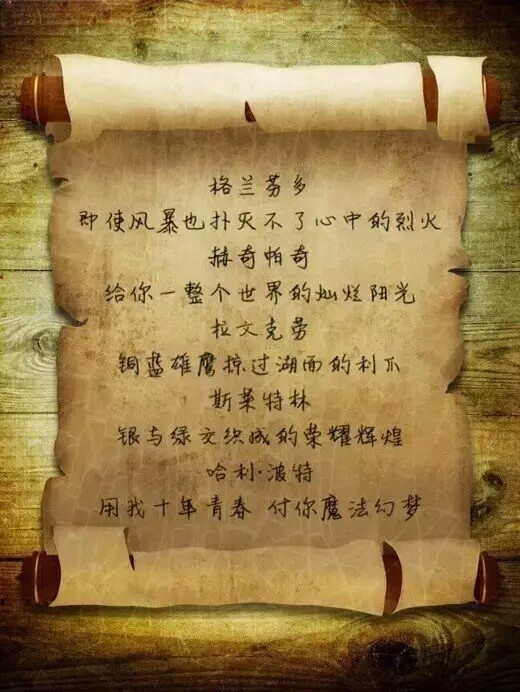 格兰芬多
即使风暴也扑灭不了心中的烈火
赫奇帕奇
给你一整个世界的灿烂阳光
拉文克劳
铜蓝雄鹰掠过湖面的利爪
斯莱特林
银与绿交织成的荣耀辉煌
哈利·波特
用我十年青春 付你魔法幻梦